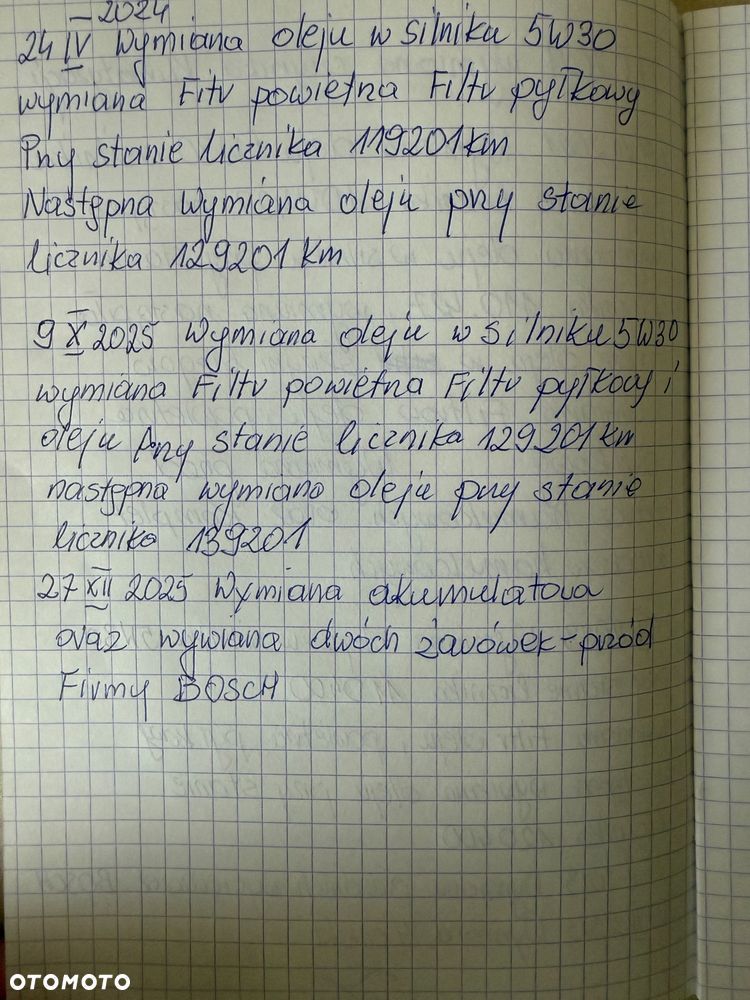 2024
24 IV Wymiana oleju w silniku 5W30
wymiana Fitr powietna Filtr pyłkowy
Pny stanie licznika 119201 km
Następna wymiana oleju pny stanie
licznika 129201 km
9 X 2025 Wymiana oleju w silniku 5W30
wymiana Filtr powietna Filtr pyłkowy i
oleju Pny stanie licznika 129201 km
następna wymiana oleju pny stanie
licznika 139201
27 XII 2025 Wymiana akumulatora
oraz wywiana dwóch żarówek-przód
Firmy BOSCH
OTOMOTO